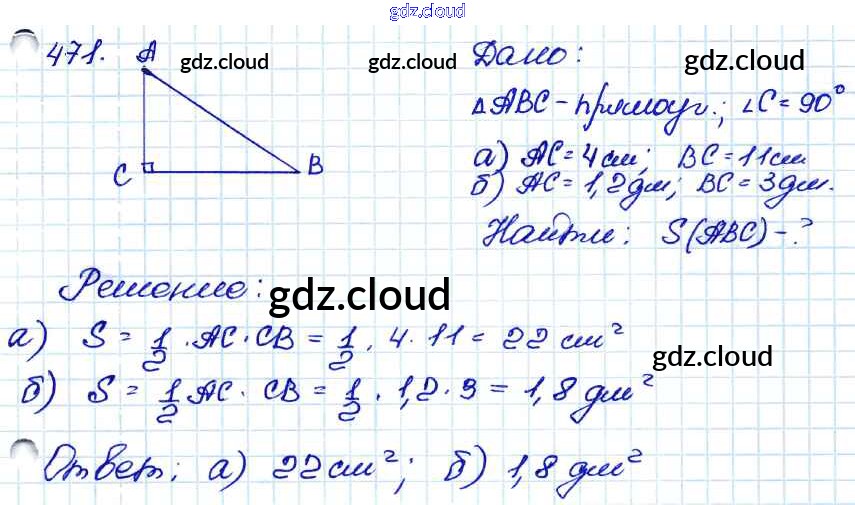 gdz.cloud
471. A gdz.cloud gdz.cloud Дано: gdz.cloud
ΔABC - прямоуг.; ∠C = 90°
C B
а) AC = 4 см; BC = 11 см
б) AC = 1,2 дм; BC = 3 дм.
Найти: S(ABC) - ?
Решение: gdz.cloud
а) S = 1/2 · AC · CB = 1/2 · 4 · 11 = 22 см²
gdz.cloud
б) S = 1/2 AC · CB = 1/2 · 1,2 · 3 = 1,8 дм²
Ответ: а) 22 см²; б) 1,8 дм²